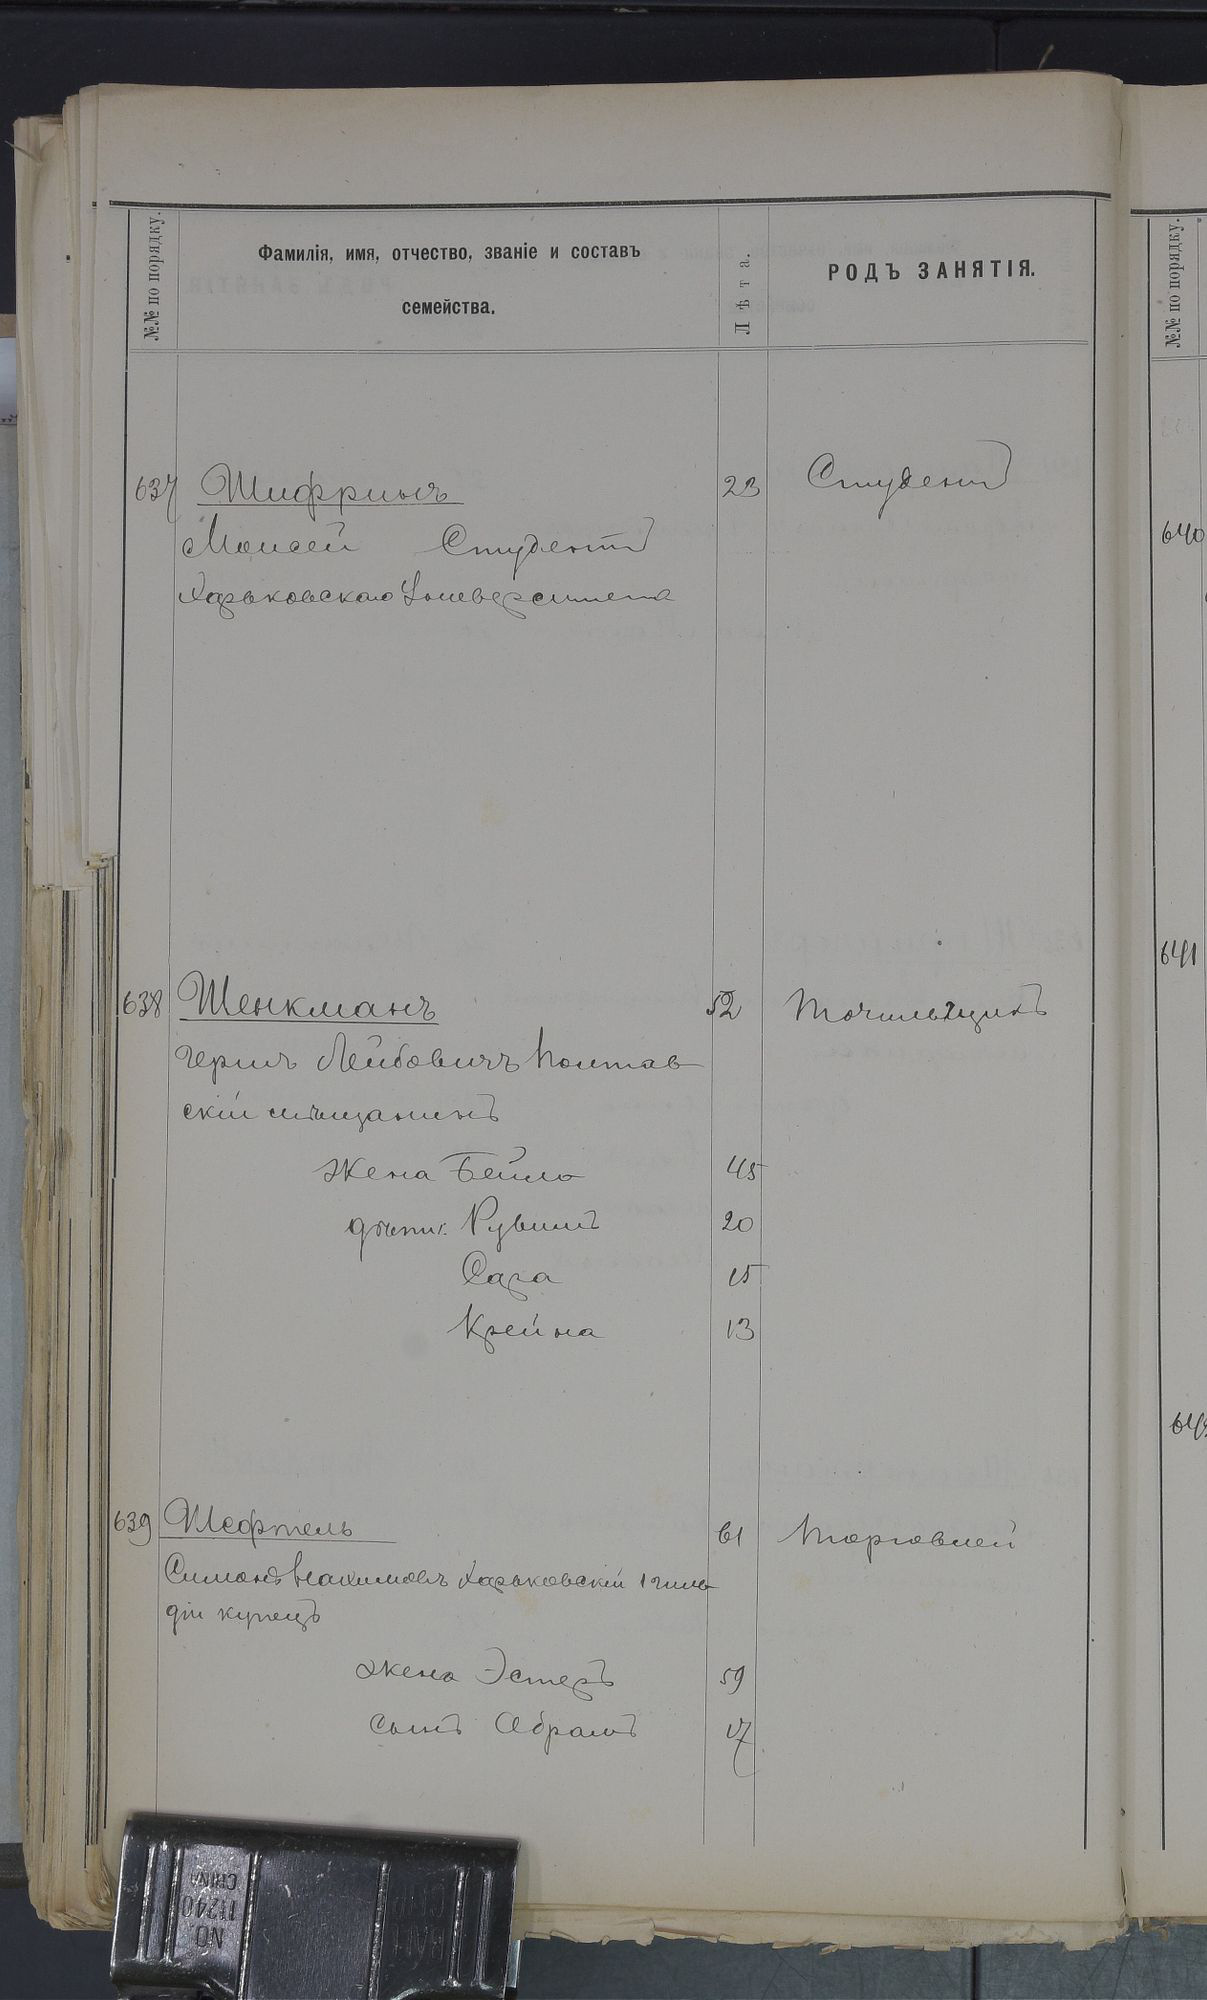 №№ по порядку.
Фамилія, имя, отчество, званіе и составъ
семейства.
Лѣта.
РОДЪ ЗАНЯТІЯ.
637 Шифринъ 23 Студентъ
Моисей Студентъ
Харьковскаго Университета
638 Шенкманъ 52 Точильщикъ
Герш Лейбовичъ Полтав
скій мѣщанинъ
жена Бейла 45
дѣти: Рувимъ 20
Сара 15
Крейна 13
639 Шефтель 61 Торговлей
Симонъ Харьковскій 1 гиль
діи купецъ
жена Эстеръ 59
сынъ Абрамъ 17
№№ по порядку.
640
641
NO.
11240